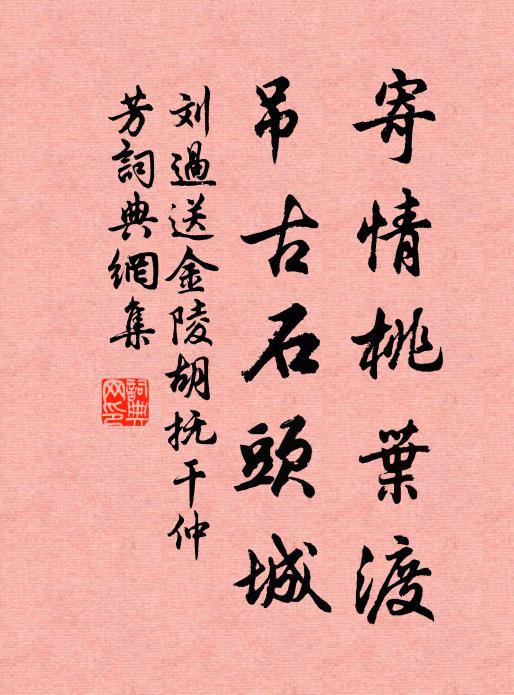 寄情桃葉渡
吊古石頭城
刘過送金陵胡抚干仲
芳詞典網集
詞典网印